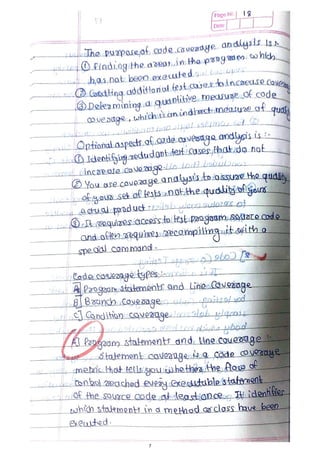 Page No. 18
Date
The purpose of code coverage analysis is :-
① Finding the areas in the program which
has not been executed.
② Creating additional test cases to increase coverage
③ Determining a quantitive measure of code
coverage, which is an indirect measure of quality
Optional aspects of code coverage analysis is :-
① Identifying redudant test cases that do not
increase coverage
② You use coverage analysis to assure the quality
of your set of tests not the quality of your
actual product.
③ It requires access to test program source code
and often requires recompiling it with a
special command.
Code coverage types:-
A] Program statements and Line Coverage
B] Branch Coverage
C] Condition coverage
A] Program statements and line coverage :-
Statement coverage is a code coverage
metric that tells you whether the flow of
control reached every executable statement
of the source code at least once. It identifies
which statements in a method or class have been
executed.